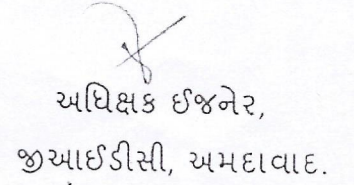 અધિક્ષક ઈજનેર,
જીઆઈડીસી, અમદાવાદ.